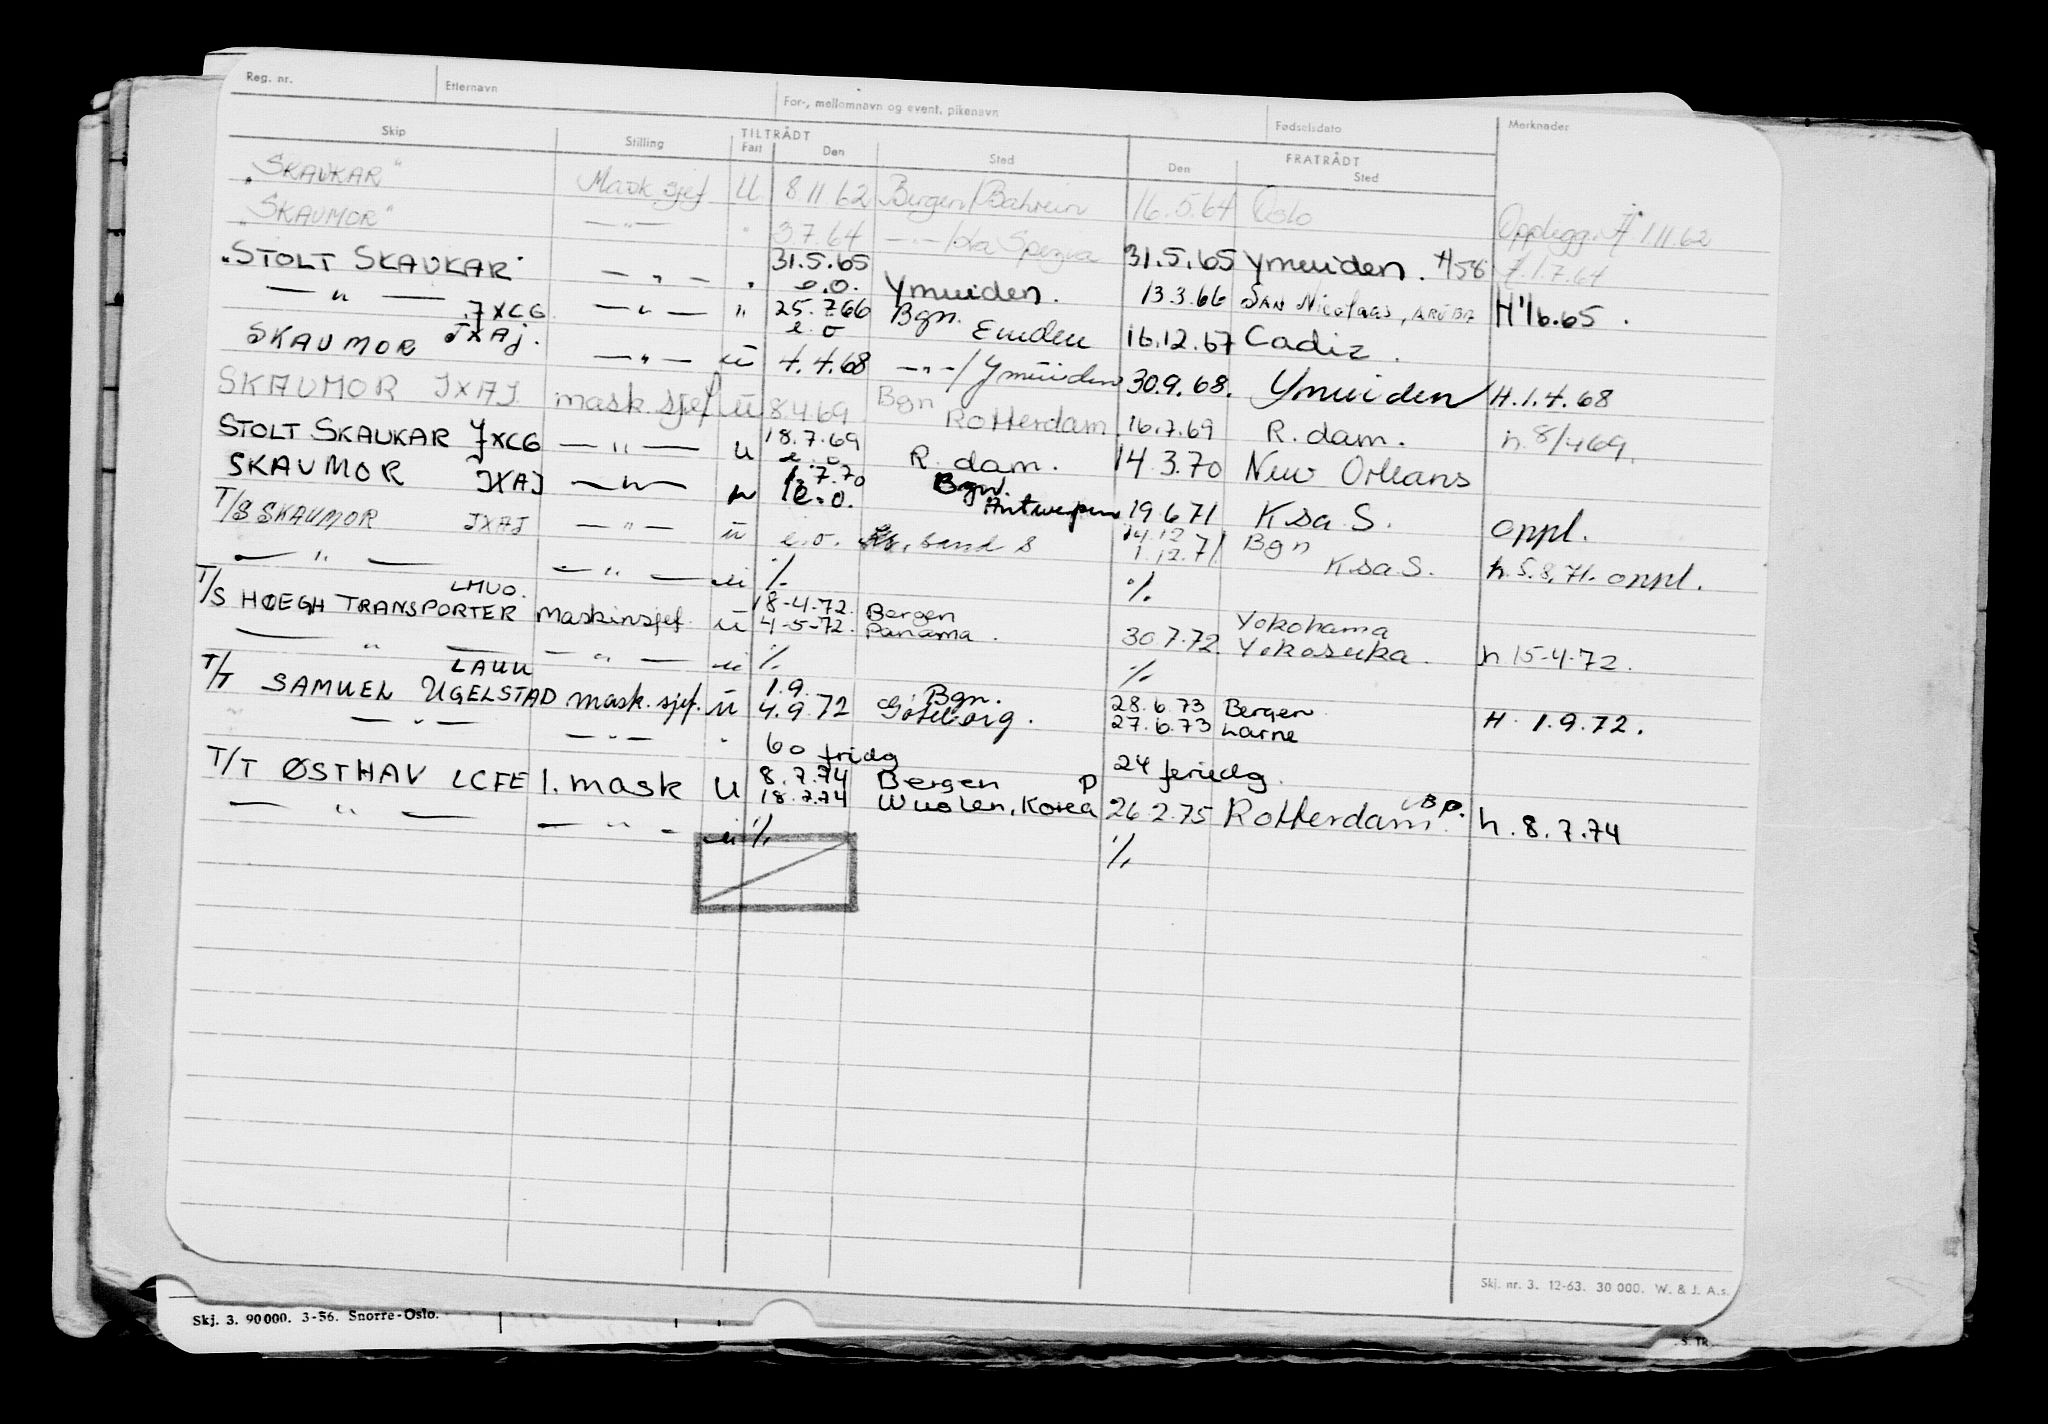 Reg. nr. Etternavn For-, mellomnavn og event. pikenavn Fødselsdato Merknader
Skip Stilling TILTRÅDT Fart Den Sted FRATRÅDT Den Sted
"SKAUKAR" Mask sjef U 8.11.62 Bergen/Bahrein 16.5.64 Oslo Opplegg. H 1.11.62
"SKAUMOR" —"— " 3.7.64 —"—/La Spezia 31.5.65 Ymuiden. H58 H.1.7.64
"STOLT SKAUKAR" —"— " 31.5.65 e.o. Ymuiden. 13.3.66 SAN Nicolaas, ARUBA H'16.65.
—"— JXCG —"— " 25.7.66 e.o Bgn. Emden 16.12.67 Cadiz.
SKAUMOR JXAJ. —"— ū 4.4.68 —"—/Ymuiden 30.9.68. Ymuiden H.1.4.68
SKAUMOR JXAJ mask.sjef ū 8.4.69 Bgn Rotterdam 16.7.69 R.dam. h.8/4 69.
STOLT SKAUKAR JXCG —"— u 18.7.69 e.o R.dam. 14.3.70 New Orleans
SKAUMOR JXAJ —"— " 1.7.70 e.o. Bgn. Antwerpen 19.6.71 Ksa S. oppl.
T/S SKAUMOR JXAJ —"— ū e.o. Kr.sand S 14.12 1.12.71. Bgn Ksa S. h.5.8.71. oppl.
—"— —"— ū ./. ./.
T/S HØEGH TRANSPORTER LMUO. maskinsjef ū 18-4-72. 4-5-72. Bergen Panama. 30.7.72 Yokohama Yokosuka. h 15-4-72.
—"— —"— ū ./. ./.
T/T SAMUEL UGELSTAD LAUU mask.sjef. ū 1.9. 4.9.72 Bgn. Göteborg. 28.6.73 27.6.73 Bergen Larne H. 1.9.72.
—"— —"— " 60 fridg 24 feriedg.
T/T ØSTHAV LCFE 1. mask U 8.7.74 18.7.74 Bergen P Korea 26.2.75 Rotterdam. BP. h. 8.7.74
—"— —"— ū ./. ./.
Skj. nr. 3. 12-63. 30 000. W. & J. A.s.
Skj. 3. 90000. 3-56. Snorre-Oslo.
S. TR